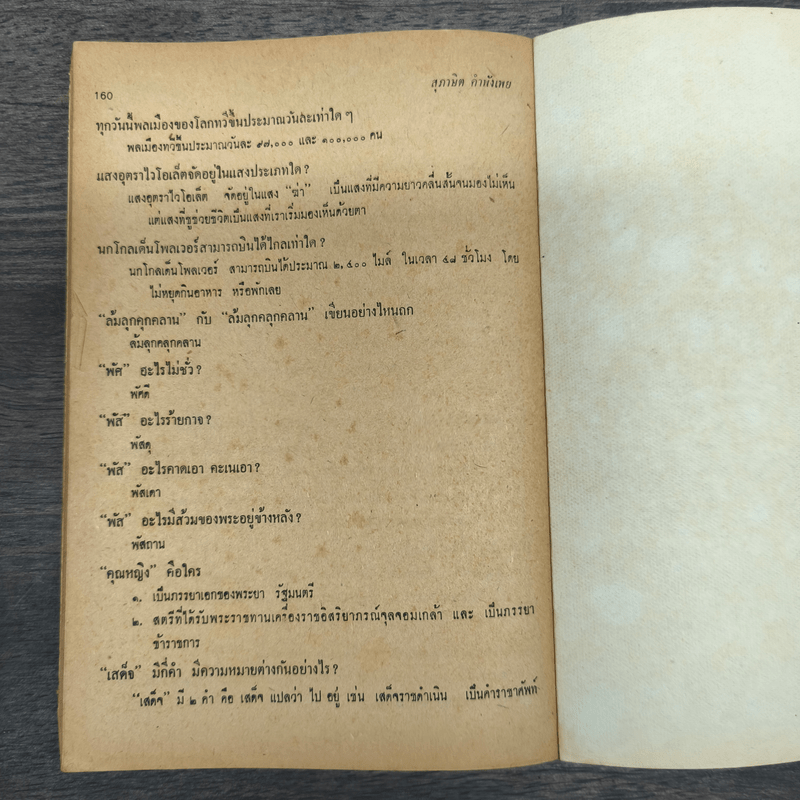 160
สุภาษิต คำพังเพย
ทุกวันนี้พลเมืองของโลกทวีขึ้นประมาณวันละเท่าใด ๆ
พลเมืองทวีขึ้นประมาณวันละ ๙๗,๐๐๐ และ ๑๐๐,๐๐๐ คน
แสงอุตราไวโอเล็ตจัดอยู่ในแสงประเภทใด?
แสงอุตราไวโอเล็ต จัดอยู่ในแสง “ฆ่า” เป็นแสงที่มีความยาวคลื่นสั้นจนมองไม่เห็น
แต่แสงที่ชูช่วยชีวิตเป็นแสงที่เราเริ่มมองเห็นด้วยตา
นกโกลเด็นโพลเวอร์สามารถบินได้ไกลเท่าใด?
นกโกลเด็นโพลเวอร์ สามารถบินได้ประมาณ ๒,๔๐๐ ไมล์ ในเวลา ๔๘ ชั่วโมง โดย
ไม่หยุดกินอาหาร หรือพักเลย
“ล้มลุกคุกคลาน” กับ “ล้มลุกคลุกคลาน” เขียนอย่างไหนถูก
ล้มลุกคลุกคลาน
“พัศ” อะไรไม่ชั่ว?
พัศดี
“พัส” อะไรร้ายกาจ?
พัสดุ
“พัส” อะไรคาดเอา คะเนเอา?
พัสเดา
“พัส” อะไรมีส้วมของพระอยู่ข้างหลัง?
พัสถาน
“คุณหญิง” คือใคร
๑. เป็นภรรยาเอกของพระยา รัฐมนตรี
๒. สตรีที่ได้รับพระราชทานเครื่องราชอิสริยาภรณ์จุลจอมเกล้า และ เป็นภรรยา
ข้าราชการ
“เสด็จ” มีกี่คำ มีความหมายต่างกันอย่างไร?
“เสด็จ” มี ๒ คำ คือ เสด็จ แปลว่า ไป อยู่ เช่น เสด็จราชดำเนิน เป็นคำราชาศัพท์